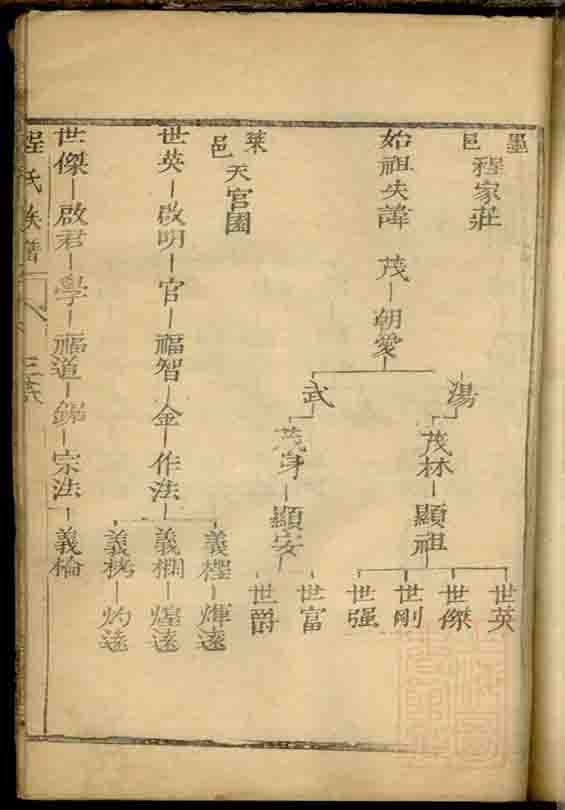 墨邑 程家莊
始祖失諱 茂 朝愛
湯 茂林 顯祖
世英 世傑 世剛 世强
武 茂 顯安
世富 世爵
萊邑 天官園
世英 啟明 官 福智 金 作法
義樫 煇遠
義欄 煌遠
義栲 灼遠
世傑 啟君 學 福道 宗法 義棆
程氏族譜